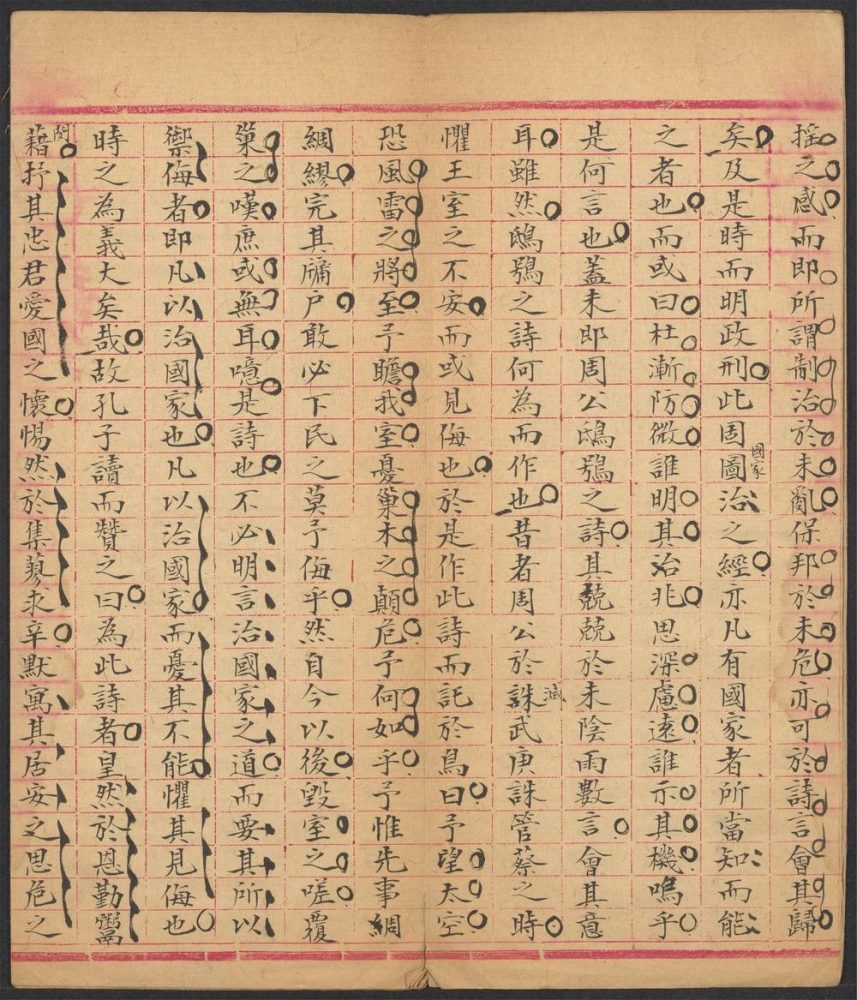 搖之感而即所謂制治於未亂保邦於未危亦可於詩言會其歸
矣及是時而明政刑此固圖國家治之經亦凡有國家者所當知而能
之者也而或曰杜漸防微誰明其治兆思深慮遠誰示其機嗚乎
是何言也蓋未即周公鴟鴞之詩其兢兢於未陰雨數言會其意
耳雖然鴟鴞之詩何為而作也昔者周公於誅滅武庚誅管蔡之時
懼王室之不安而或見侮也於是作此詩而託於鳥曰予望太空
恐風雷之將至予瞻我室憂巢木之顛危予何如乎予惟先事綢
綢繆完其牖户敢必下民之莫予侮乎然自今以後毀室之嗟覆
巢之嘆庶或無耳噫是詩也不必明言治國家之道而要其所以
禦侮者即凡以治國家也凡以治國家而憂其不能懼其見侮也
時之為義大矣哉故孔子讀而贊之曰為此詩者皇然於恩勤鬻
閔藉抒其忠君愛國之懷惕然於集蓼求辛默寓其居安之思危之